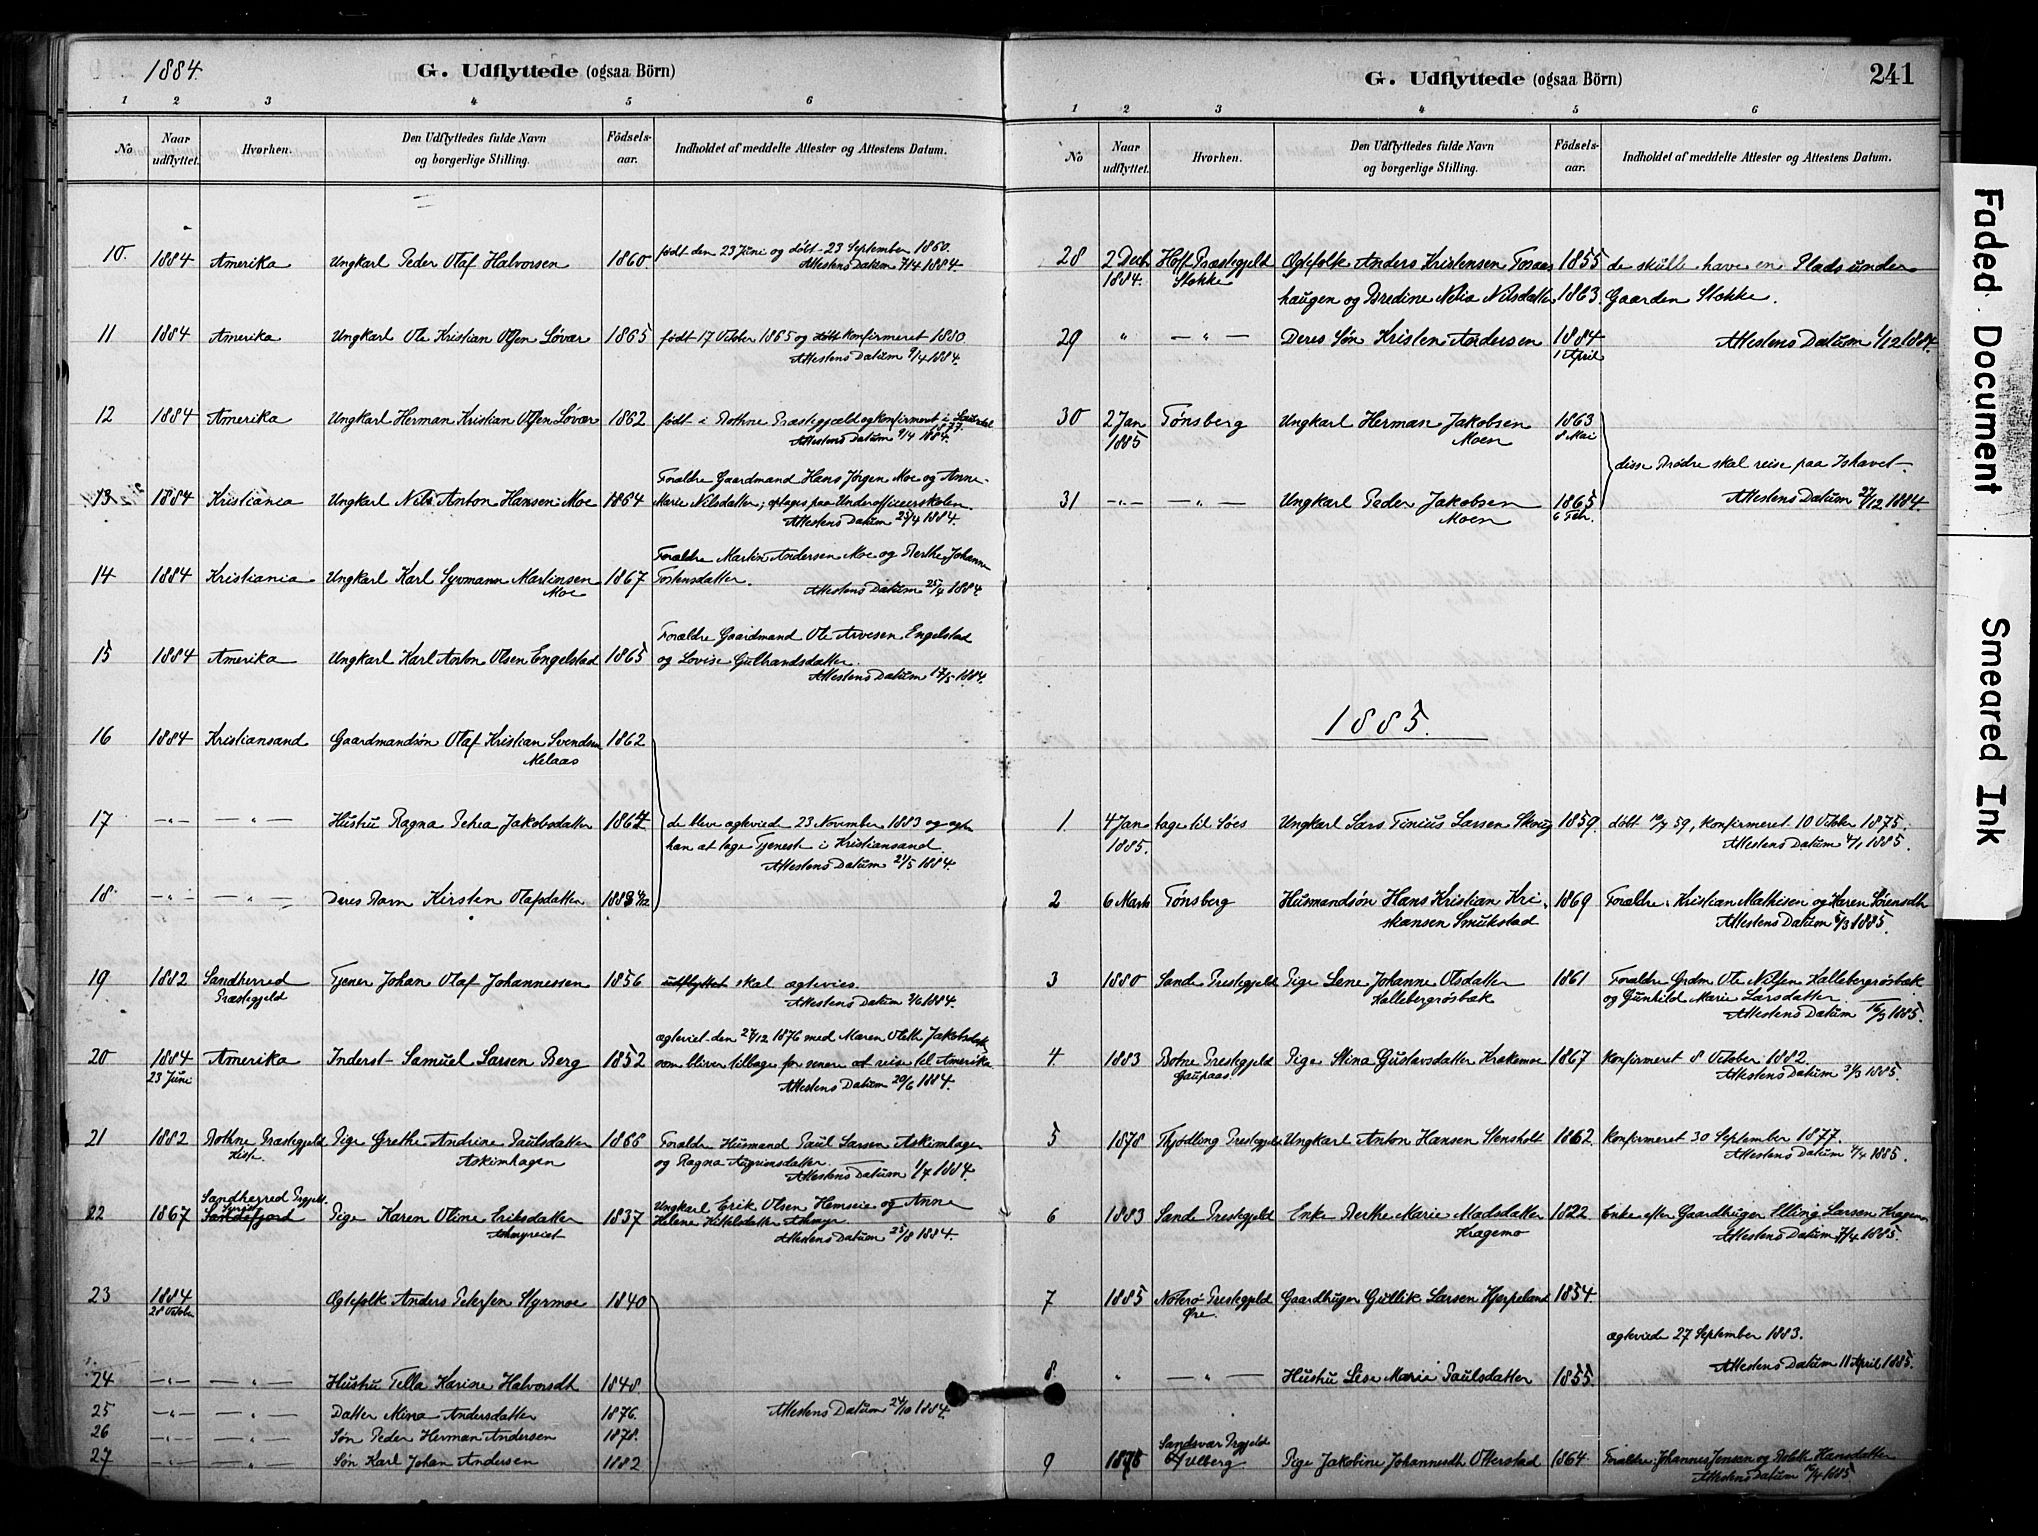 1884.
G. Udflyttede (ogsaa Börn)
1 2 3 4 5 6
No
Naar udflyttet.
Hvorhen.
Den Udflyttedes fulde Navn og borgerlige Stilling.
Födsels-aar.
Indholdet af meddelte Attester og Attestens Datum.
10. 1884 Amerika Ungkarl Peder Olaf Halvorsen 1860. født den 23 Juni og døbt 23 September 1860.
Attestens Datum 7/4 1884.
11 1884 Amerika Ungkarl Ole Kristian Olsen Løvar 1865 født 17 Oktober 1865 og døbt konfirmeret 1880.
Attestens Datum 9/4 1884.
12 1884 Amerika Ungkarl Herman Kristian Olsen Løvar 1862 født i Bothne Præstegjæld og konfirmeret i
1877.
Attestens Datum 9/4 1884.
13 1884 Kristiania Ungkarl Nils Anton Hansen Moe 1864 Forældre Gaardmand Hans Jørgen Moe og Anne
Marie Nilsdatter; optages paa Underofficerskolen.
Attestens Datum 25/4 1884.
14 1884 Kristiania Ungkarl Karl Syvmann Martinsen Moe 1867 Forældre Martin Andersen Moe og Berthe Johanne
Tostensdatter.
Attestens Datum 25/4 1884
15 1884 Amerika Ungkarl Karl Anton Olsen Engelstad 1865 Forældre Gaardmand Ole Arvesen Engelstad
og Lovise Gulbrandsdatter.
Attestens Datum 17/5 1884.
16 1884 Kristiansand Gaardmandsøn Olaf Kristian Svendsen 1862
Melaas
17 -„- -„- Hustru Ragna Petrea Jakobsdatter 1864 de bleve ægteviede 23 November 1883 og agter
han at tage Tjeneste i Kristiansand.
Attestens Datum 21/5 1884.
18 -„- -„- Deres Barn Kirsten Olafsdatter 1883 4/12
19 1882 Sandherred Præstegjeld Tjener Johan Olaf Johannessen 1856 udflyttet skal ægtevies.
Attestens Datum 3/6 1884.
20 1884 23 Juni Amerika Inderst Samuel Larsen Berg 1852 ægteviet den 27/12 1876 med Maren Oleth. Jakobsdtr
som bliver tilbage for senere at reise til Amerika
Attestens Datum 20/6 1884.
21 1882 Bothne Præstegjeld Pige Grethe Andrine Paulsdatter 1866 Forældre Husmand Paul Larsen Askimhagen
Askimhagen og Ragna Asgrimsdatter.
Attestens Datum 1/7 1884.
22 1867 Sandherred Prgjeld. Sandefjord Pige Karen Oline Eriksdatter 1837 Ungkarl Erik Olsen Hemseie og Anne
Helene Kittelsdatter
Attestens Datum 25/8 1884.
23 1884 28 Oktober Ægtefolk Anders Petersen Styrmoe 1840
24 -„- -„- Hustru Tella Karine Halvorsdtr 1848.
25 -„- -„- Datter Mina Andersdatter 1876. Attestens Datum 24/10 1884.
26 -„- -„- Søn Peder Herman Andersen 1878.
27 -„- -„- Søn Karl Johan Andersen 1882
G. Udflyttede (ogsaa Börn)
241
1 2 3 4 5 6
No
Naar udflyttet.
Hvorhen.
Den Udflyttedes fulde Navn og borgerlige Stilling.
Födsels-aar.
Indholdet af meddelte Attester og Attestens Datum.
28 2 Decb 1884. Hof Præstegjeld Stokke Ægtefolk Anders Kristensen Fosaas 1855 de skulle have en Plads under
haugen og Bredine Nelia Nilsdatter 1863. Gaarden Stokke.
29 „ -„- Deres Søn Kristen Andersen 1884 1 April Attestens Datum 1/12 1884.
30 2 Jan 1885 Tønsberg Ungkarl Herman Jakobsen Moen 1863 8 Mai
disse Brødre skal reise paa Ishavet.
31 -„- -„- Ungkarl Peder Jakobsen Moen 1865 6 Febr. Attestens Datum 27/12 1884.
1885.
1. 4 Jan 1885. tage til Søes Ungkarl Lars Tinius Larsen Skoug 1859 døbt 10/7 59, konfirmeret 10 Oktober 1875.
Attestens Datum 4/1 1885.
2 6 Marts Tønsberg Husmandsøn Hans Kristian Kri- 1869 Forældre: Kristian Mathisen og Karen Sørensdtr
stiansen Smukstad Attestens Datum 5/3 1885.
3 1880 Sande Prestegjeld Pige Lene Johanne Olsdatter 1861 Forældre Grdm. Ole Nilsen Hallebergrøsbæk
Hallebergrøsbæk og Gunhild Marie Larsdatter.
Attestens Datum 16/3 1885.
4. 1883 Botne Prestegjeld Gaupaas. Pige Stina Gustavsdatter Krakemoe 1867 Konfirmeret 8 October 1882.
Attestens Datum 31/3 1885.
5 1878 Thjødling Prestegjeld Ungkarl Anton Hansen Stensholt 1862 Konfirmeret 30 September 1877.
Attestens Datum 4/4 1885.
6 1883 Sande Prestegjeld Enke Berthe Marie Madsdatter 1822 Enke efter Gaardbruger Elling Larsen Kragemo
Kragemo Attestens Datum 7/4 1885.
7 1885 Nøterø Prestegjeld Øre Gaardbruger Gullik Larsen Hjerpeland 1854.
ægteviede 27 September 1883.
8. „ -„- Hustru Lise Marie Paulsdatter 1855. Attestens Datum 11 April 1885.
9 1875 Sandsvær Prgjeld Pige Jakobine Johannesdtr Otterstad 1864. Forældre Johannes Jensen og Hansdatter
Attestens Datum 16/4 1885.
Faded Document
Smeared Ink